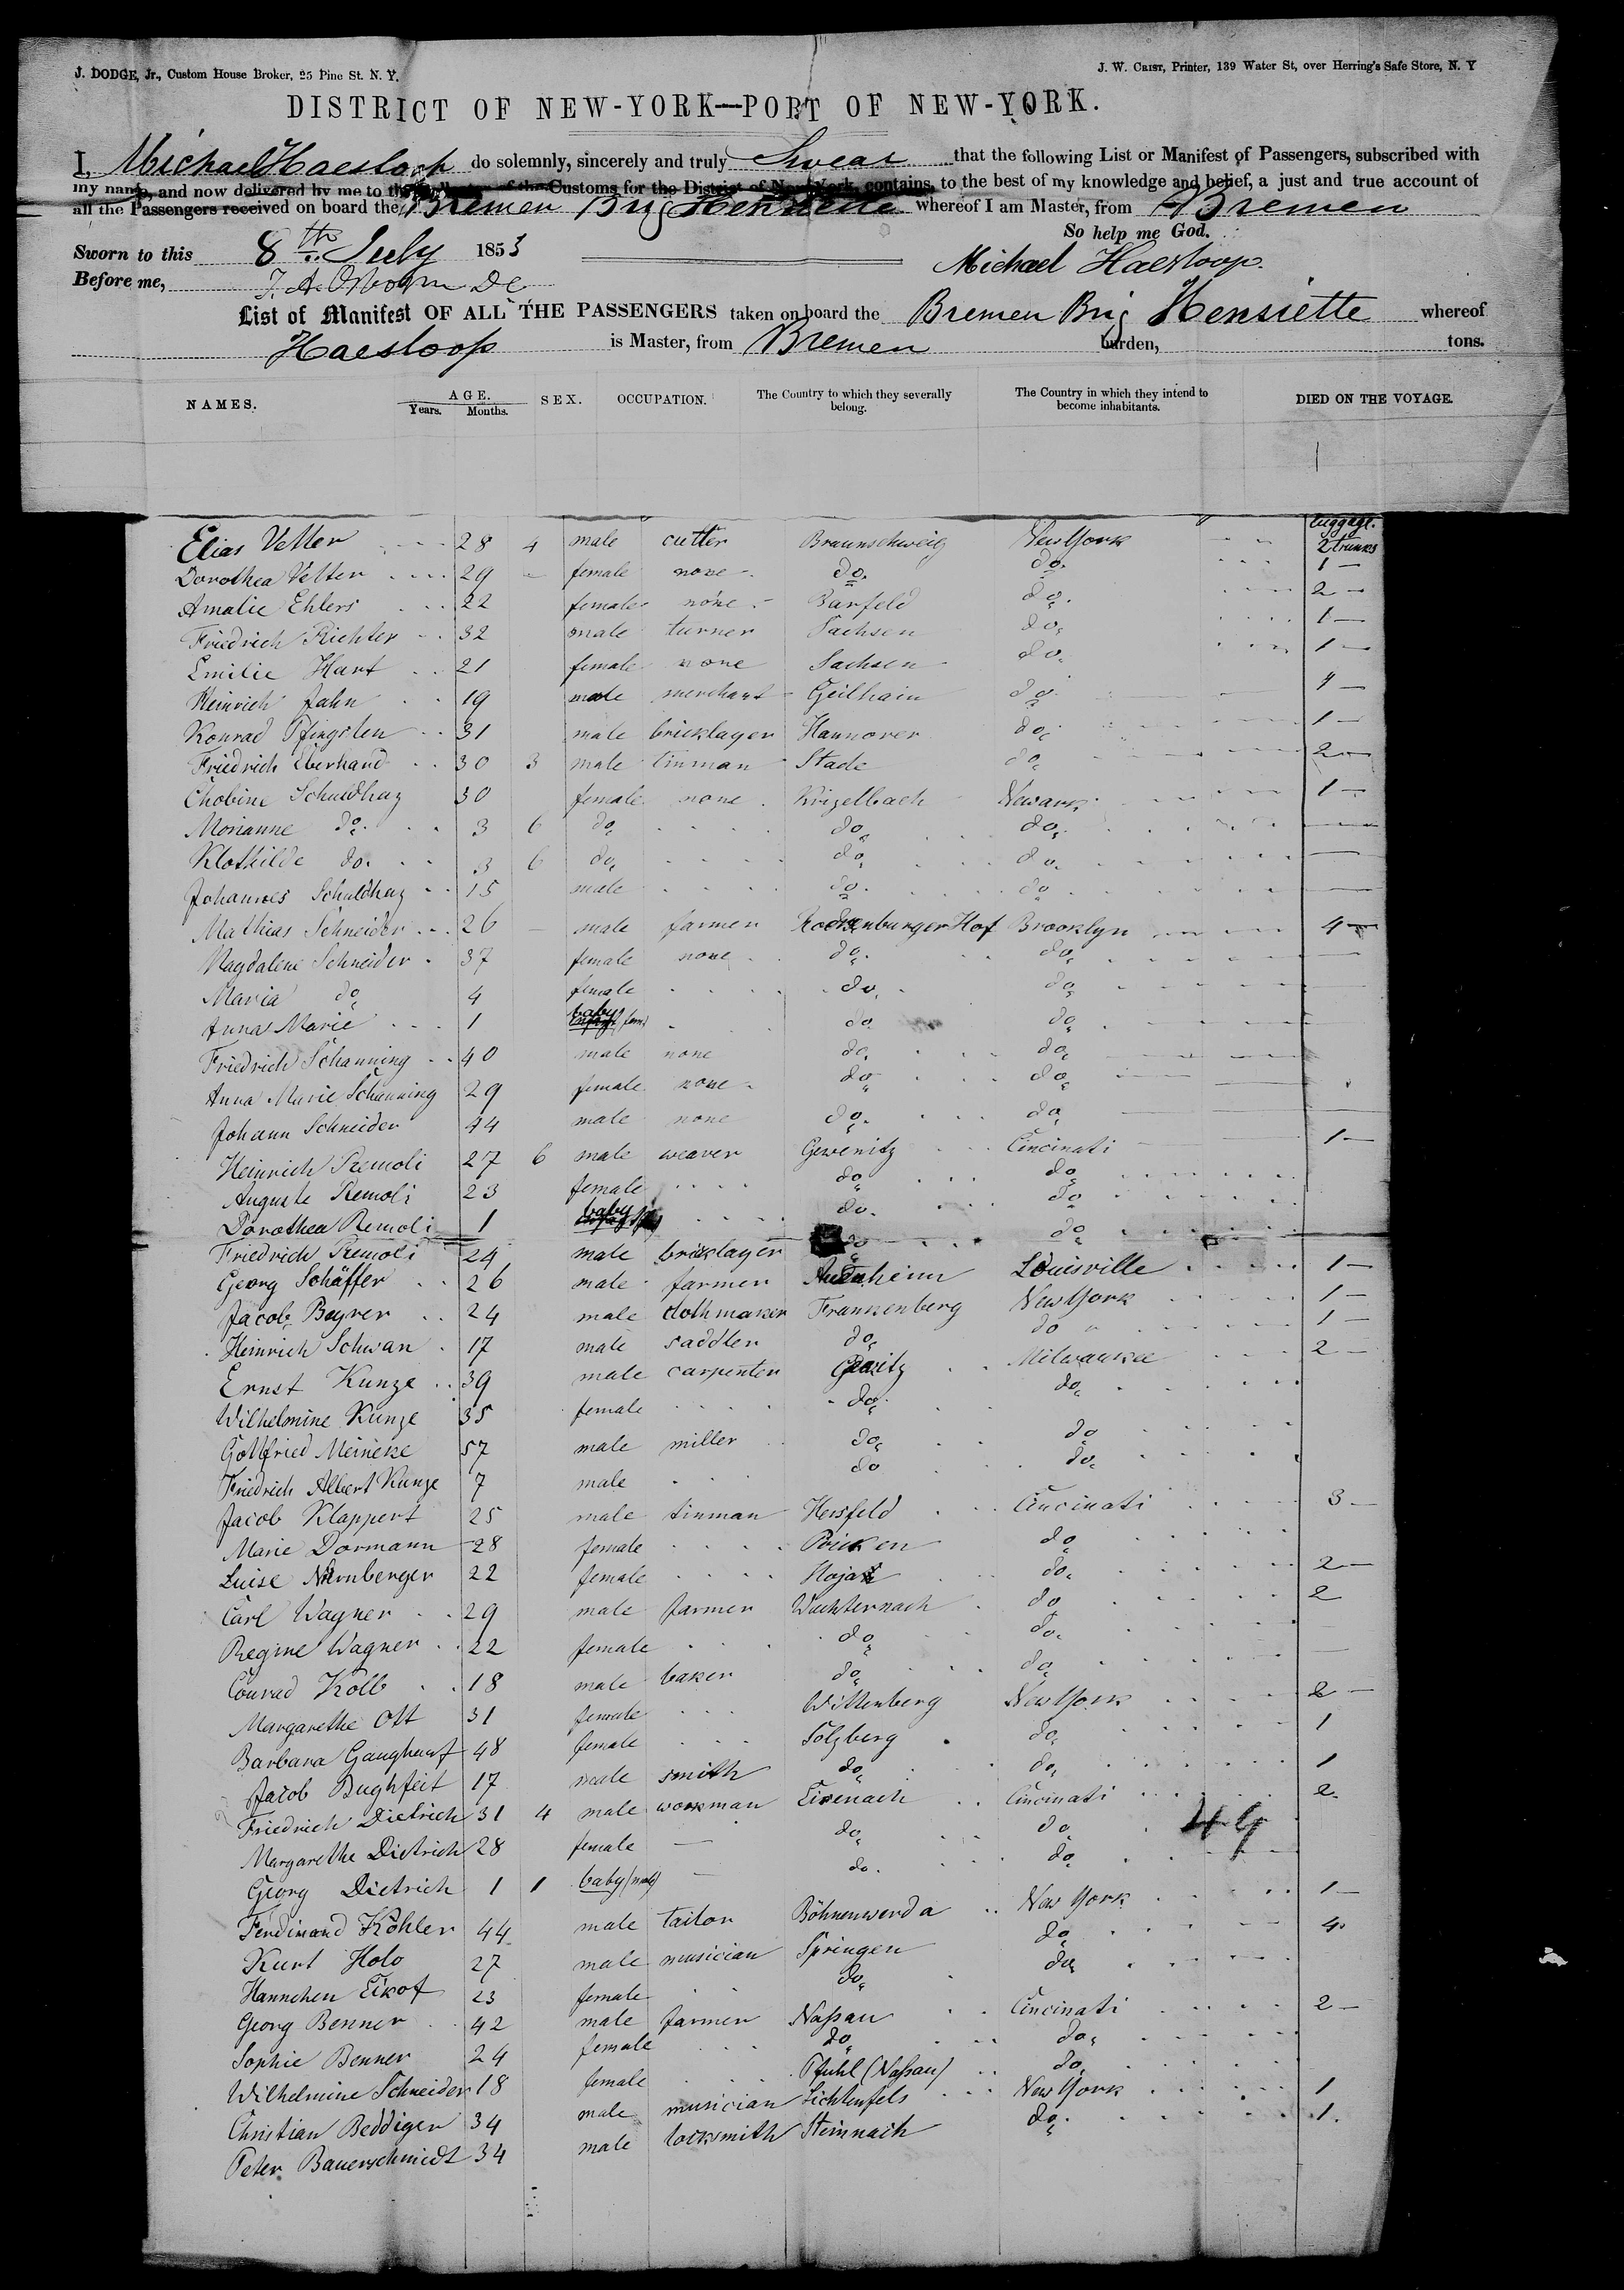 J. DODGE, Jr., Custom House Broker, 25 Pine St. N. Y.
J. W. CRIST, Printer, 139 Water St, over Herring's Safe Store, N. Y
DISTRICT OF NEW-YORK—PORT OF NEW-YORK.
I, Michael Haesloop do solemnly, sincerely and truly Swear that the following List or Manifest of Passengers, subscribed with
my name, and now delivered by me to the Collector of the Customs for the District of New York, contains, to the best of my knowledge and belief, a just and true account of
all the Passengers received on board the Bremen Brig Henriette whereof I am Master, from Bremen
So help me God.
Sworn to this 8th July 1853
Michael Haesloop.
Before me, J. A. Osborn DC
List of Manifest OF ALL THE PASSENGERS taken on board the Bremen Brig Henriette whereof
Haesloop is Master, from Bremen burden, tons.
NAMES. AGE. Years. Months. SEX. OCCUPATION. The Country to which they severally belong. The Country in which they intend to become inhabitants. DIED ON THE VOYAGE.
luggage.
Elias Vetter 28 4 male cutter Braunschweig New York 2 trunks
Dorothea Vetter 29 female none do. do. 1 —
Amalie Ehlers 22 female none Barfeld do. 2 —
Friedrich Richter 32 male turner Sachsen do. 1 —
Emilie Hart 21 female none Sachsen do. 1 —
Heinrich Jahn 19 male merchant Geilhain do. 1 —
Konrad Pfingsten 31 male bricklager Hannover do. 1 —
Friedrich Eberhard 30 3 male tinman Stade do. 2 —
Chobine Schuldhay 30 female none Krizelbach Newark 1 —
Morianne do. 3 6 do. do. do. —
Klothilde do. 3 6 do. do. do. —
Johannes Schuldhay 15 male do. do. —
Mathias Schneider 26 male farmer Hof Brooklyn 4 —
Magdalene Schneider 37 female none do. do. —
Maria do. 4 female do. do. —
Anna Marie 1 baby do. do.
Friedrich Schanning 40 male none do. do.
Anna Marie Schanning 29 female none do. do.
Johann Schneider 44 male none do. do.
Heinrich Remoli 27 6 male weaver Gewenitz Cincinati 1 —
Auguste Remoli 23 female do. do.
Dorothea Remoli 1 baby do. do.
Friedrich Remoli 24 male bricklager do do.
Georg Schäffer 26 male farmer Louisville 1 —
Jacob Beyrer 24 male clothmaker Frankenberg New York 1 —
Heinrich Schwan 17 male saddler do. do 1 —
Ernst Kunze 39 male carpenter Milwaukee 2 —
Wilhelmine Kunze 35 female do. do.
Gottfried Meineke 57 male miller do. do
Friedrich Albert Kunze 7 male do do.
Jacob Klappert 25 male tinman Hersfeld Cincinati 3 —
Marie Dormann 28 female do.
Luise Nürnberger 22 female do. 2 —
Carl Wagner 29 male farmer Wachternach do 2
Regine Wagner 22 female do. do.
Conrad Kolb 18 male baker do. do.
Margarethe Ott 31 female Wittenberg New York 2 —
Barbara Gaughauf 48 female Solzberg do. 1
Jacob Bughfeit 17 male smith do. do. 1
Friedrich Dietrich 31 4 male workman Eisenach Cincinati 2.
Margarethe Dietrich 28 female — do. do.
49
Georg Dietrich 1 1 baby (male) — do. do.
Ferdinand Köhler 44 male tailor Böhnenwerda New York 1 —
Kurt Holo 27 male musician Springen do. 4
Hannchen Eikof 23 female do. do.
Georg Benner 42 male farmer Nassau Cincinati 2 —
Sophie Benner 24 female do. do.
Wilhelmine Schneider 18 female Pfuhl (Nassau) do.
Christian Beddiger 34 male musician Lichtenfels New York 1
Peter Bauerschmidt 34 male locksmith Steinnach do. 1.